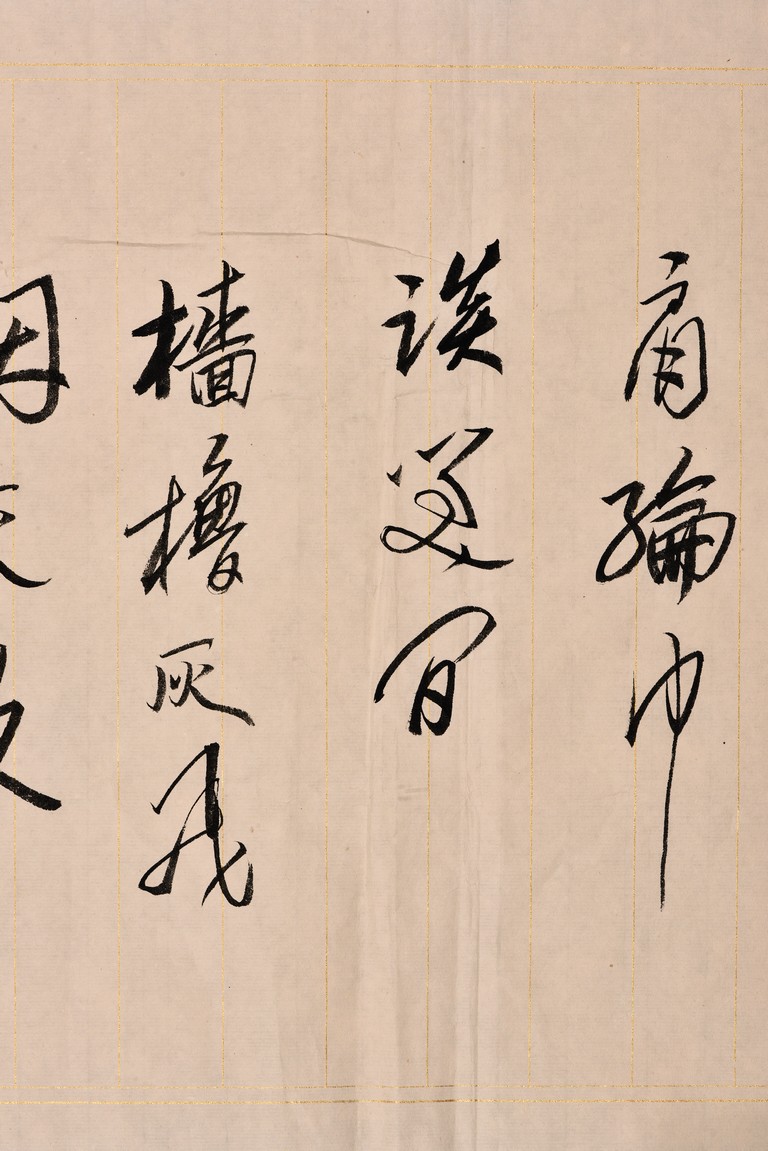 扇綸巾
談笑間
檣櫓灰飛